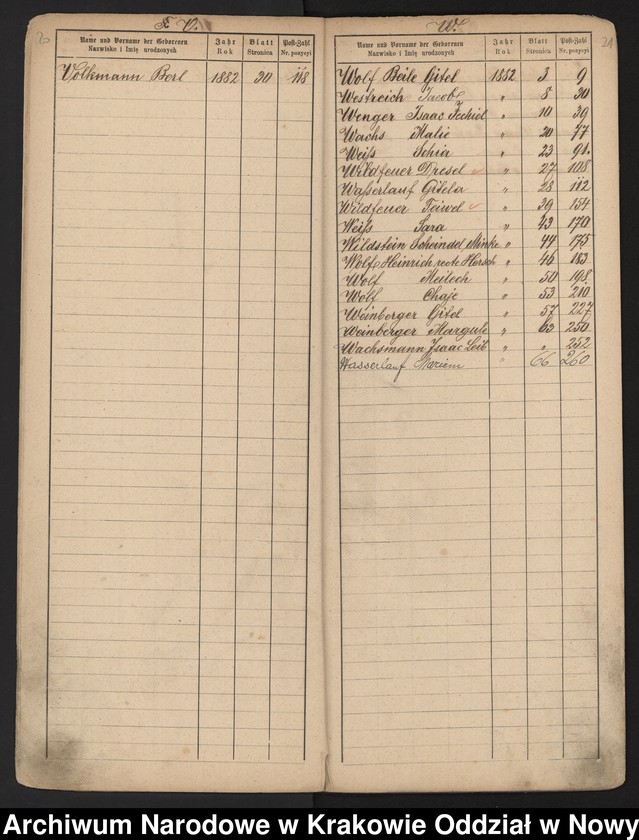 V.
Name und Vorname der Geborenen Jahr Blatt Post-Zahl
Nazwisko i Imię urodzonych Rok Stronica Nr. pozycyi
Volkmann Berl 1882 30 118
W. 21
Name und Vorname der Geborenen Jahr Blatt Post-Zahl
Nazwisko i Imię urodzonych Rok Stronica Nr. pozycyi
Wolf Beile Gitel 1882 3 9
Westreich Jacob " 8 30
Wenger Isaac Jechiel " 10 39
Wachs Malie " 20 77
Weiß Schia " 23 91.
Wildfeuer Dresel " 27 108
Waßerlauf Gitela " 28 112
Wildfeuer Feiwel " 39 154
Weiß Sara " 43 170
Wildstein Scheindel Minke " 44 175
Wolf Heinrich recte Hersch " 46 183
Wolf Meilech " 50 198
Wolf Chaje " 53 210
Weinberger Gitel " 57 227
Weinberger Margule " 63 250
Wachsmann Isaac Leib " " 252
Wasserlauf Mariem " 66 260
Archiwum Narodowe w Krakowie Oddział w Nowy